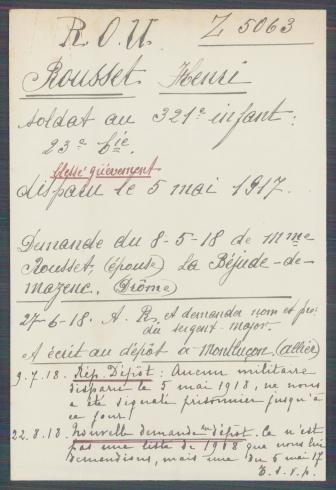 R. O. U. Z 5063
Rousset Henri
soldat au 321e infant:
23e Cie.
blessé grièvement
disparu le 5 mai 1917.
Demande du 8-5-18 de mme
Rousset, (épouse) La Béjude-de-
mazenc. (Drôme)
27-6-18. A. R. et demander nom et
du sergent-major.
A écrit au dépôt à Montluçon. (allier)
9.7.18. Rép. Dépôt: Aucun militaire
disparu le 5 mai 1918, ne nous
a été signalé prisonnier jusqu'à
ce jour!
22.8.18. Nouvelle demande au dépôt. Ce n'est
pas une liste de 1918 que nous lui
demandions, mais une du 5 mai 17
T. S. V. P.